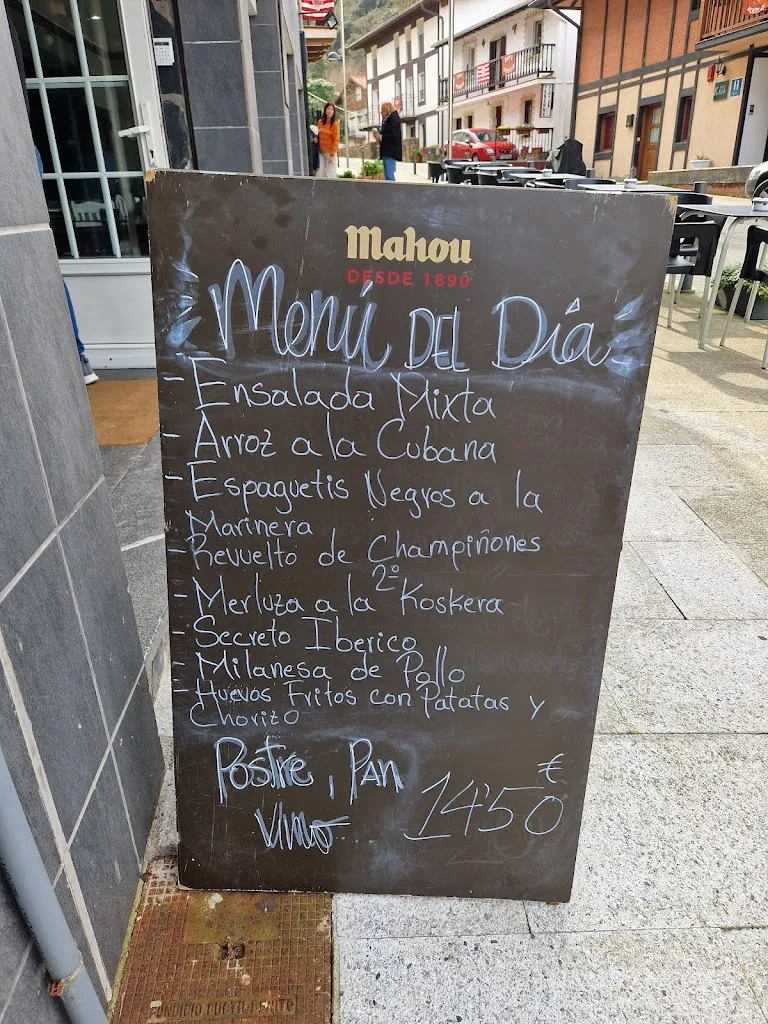 mahou
DESDE 1890
Menú DEL Día
- Ensalada Mixta
- Arroz a la Cubana
- Espaguetis Negros a la
Marinera
- Revuelto de Champiñones
2º
- Merluza a la Koskera
- Secreto Iberico
- Milanesa de Pollo
- Huevos Fritos con Patatas y
Chorizo
Postre, Pan
Vino
14'50 €